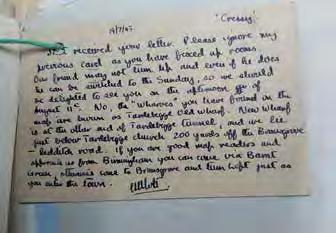 'Cressy'
19/7/45
Just received your letter. Please ignore my
previous card as you have fixed up rooms.
Our friend may not turn up and even if he does
he can be switched to the Sunday, so we should
be delighted to see you on the afternoon of
August 4th. No, the "wharves" you have found on the
map are known as Tardebigge Old Wharf. New Wharf
is at the other end of Tardebigge tunnel, and we lie
just below Tardebigge church 200 yards off the Bromsgrove
- Redditch road. If you are good map readers and
approach us from Birmingham you can come via Barnt
Green, otherwise come to Bromsgrove and turn left just as
you enter the town.